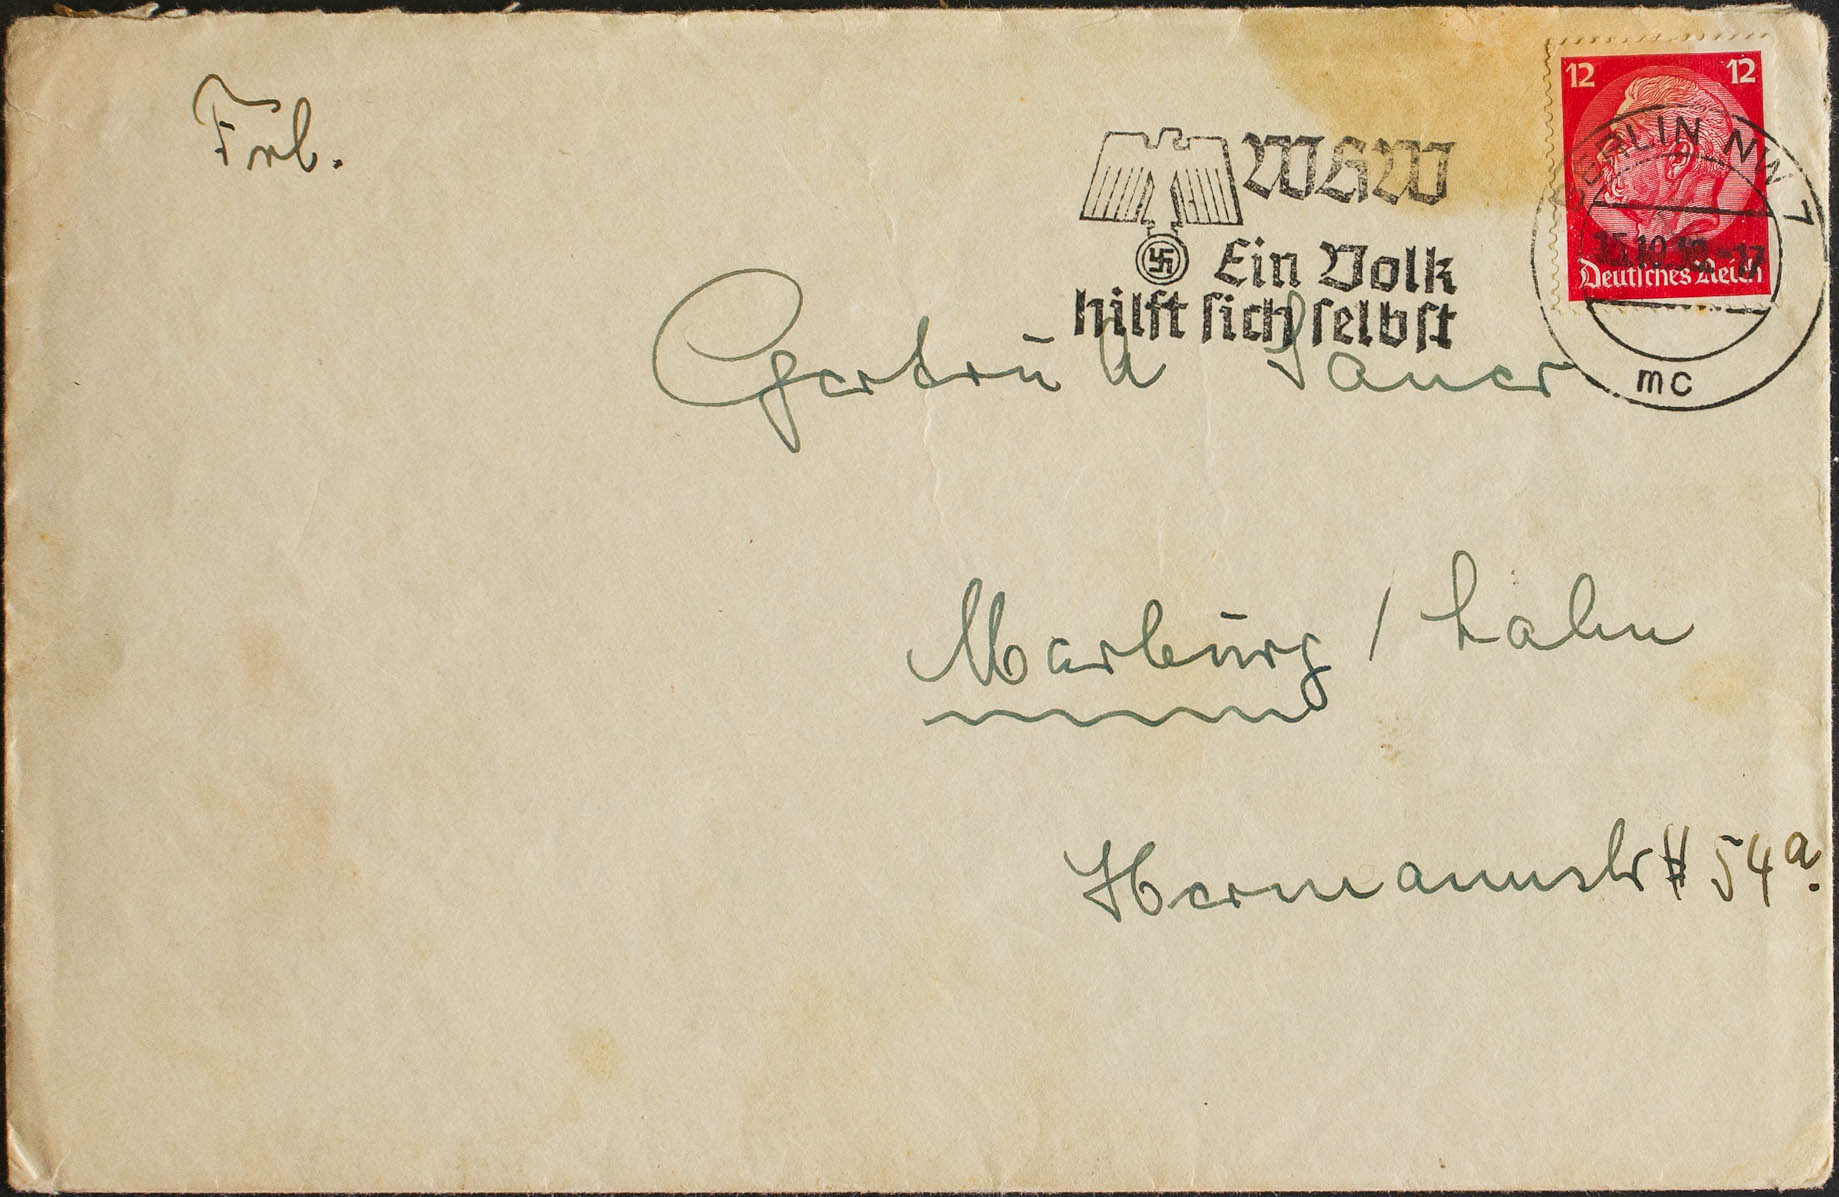 Frl.
WHW
Ein Volk
hilft sich selbst
12 12
Deutsches Reich
BERLIN NW 7
mc
Gertrud Sauer
Marburg / Lahn
Hermannstr 54 a.